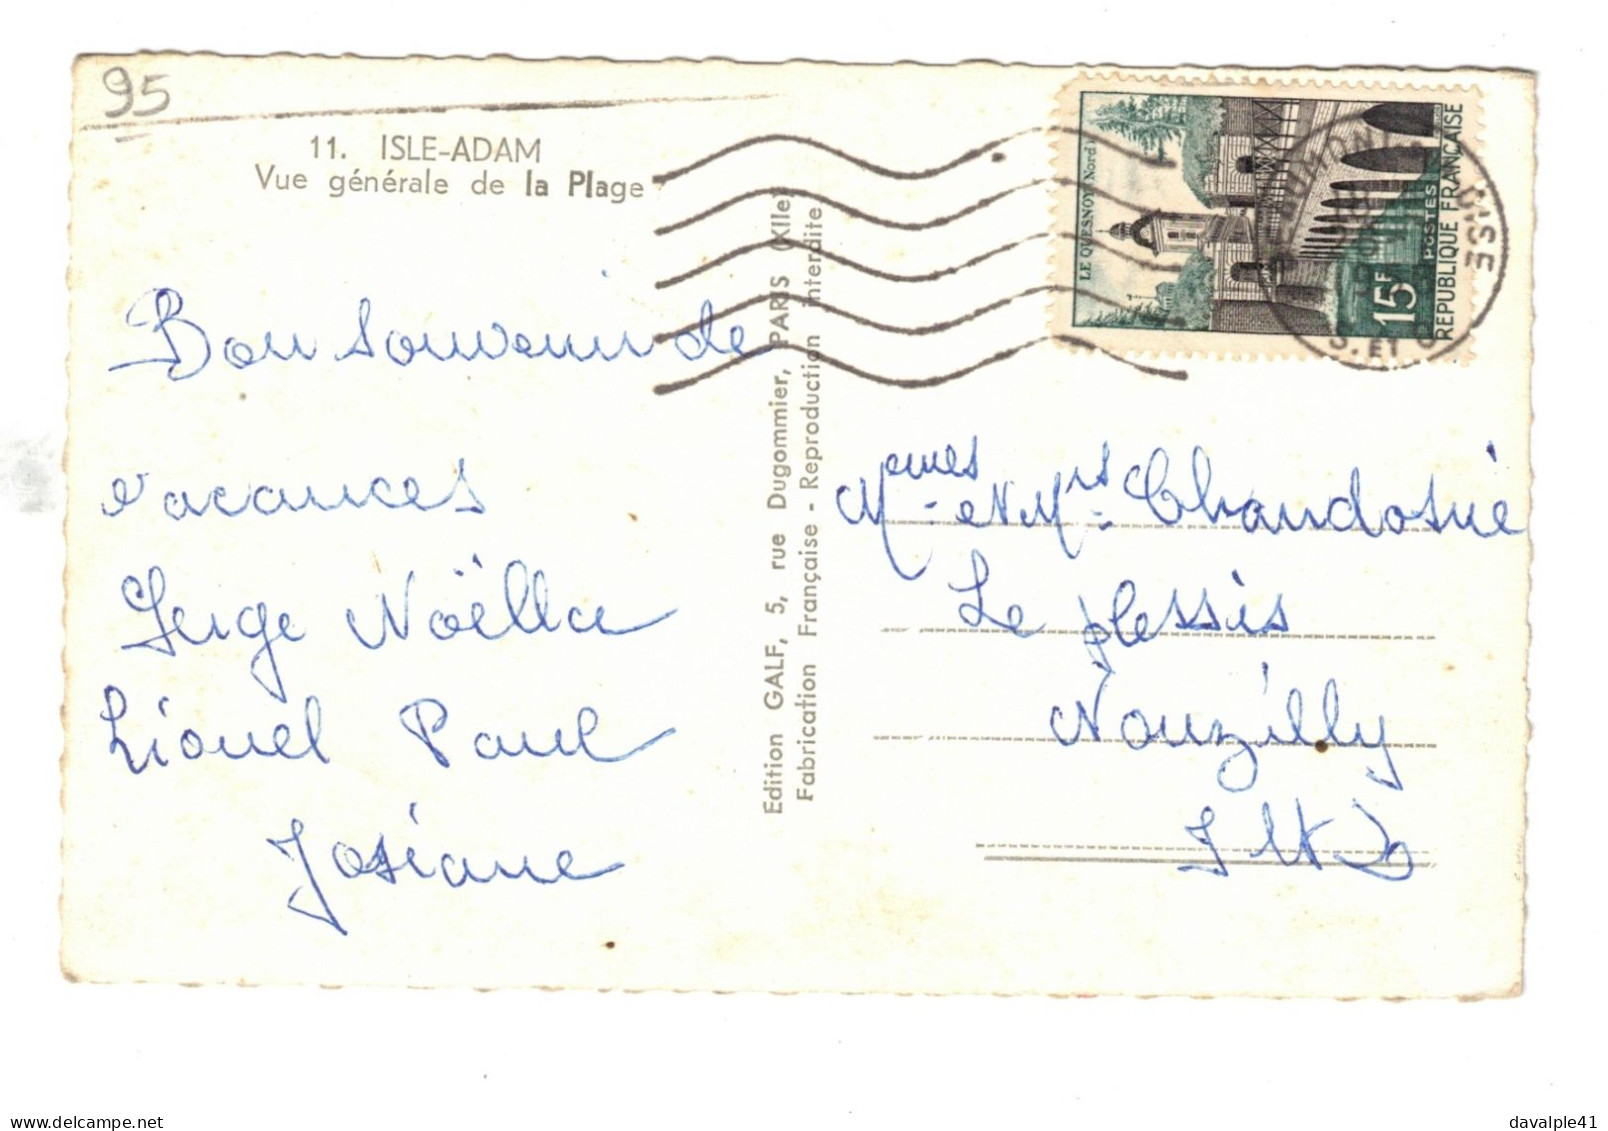 95
11. ISLE-ADAM
Vue générale de la Plage
Bon souvenir de
vacances
Serge Noëlla
Lionel Paul
Josiane
Edition GALF, 5, rue Dugommier, PARIS (XIIe)
Fabrication Française - Reproduction interdite
LE QUESNOY (Nord)
15F
POSTES
REPUBLIQUE FRANÇAISE
OISE
S. ET O.
Le plessis
Nouzilly
I et L
davalple41